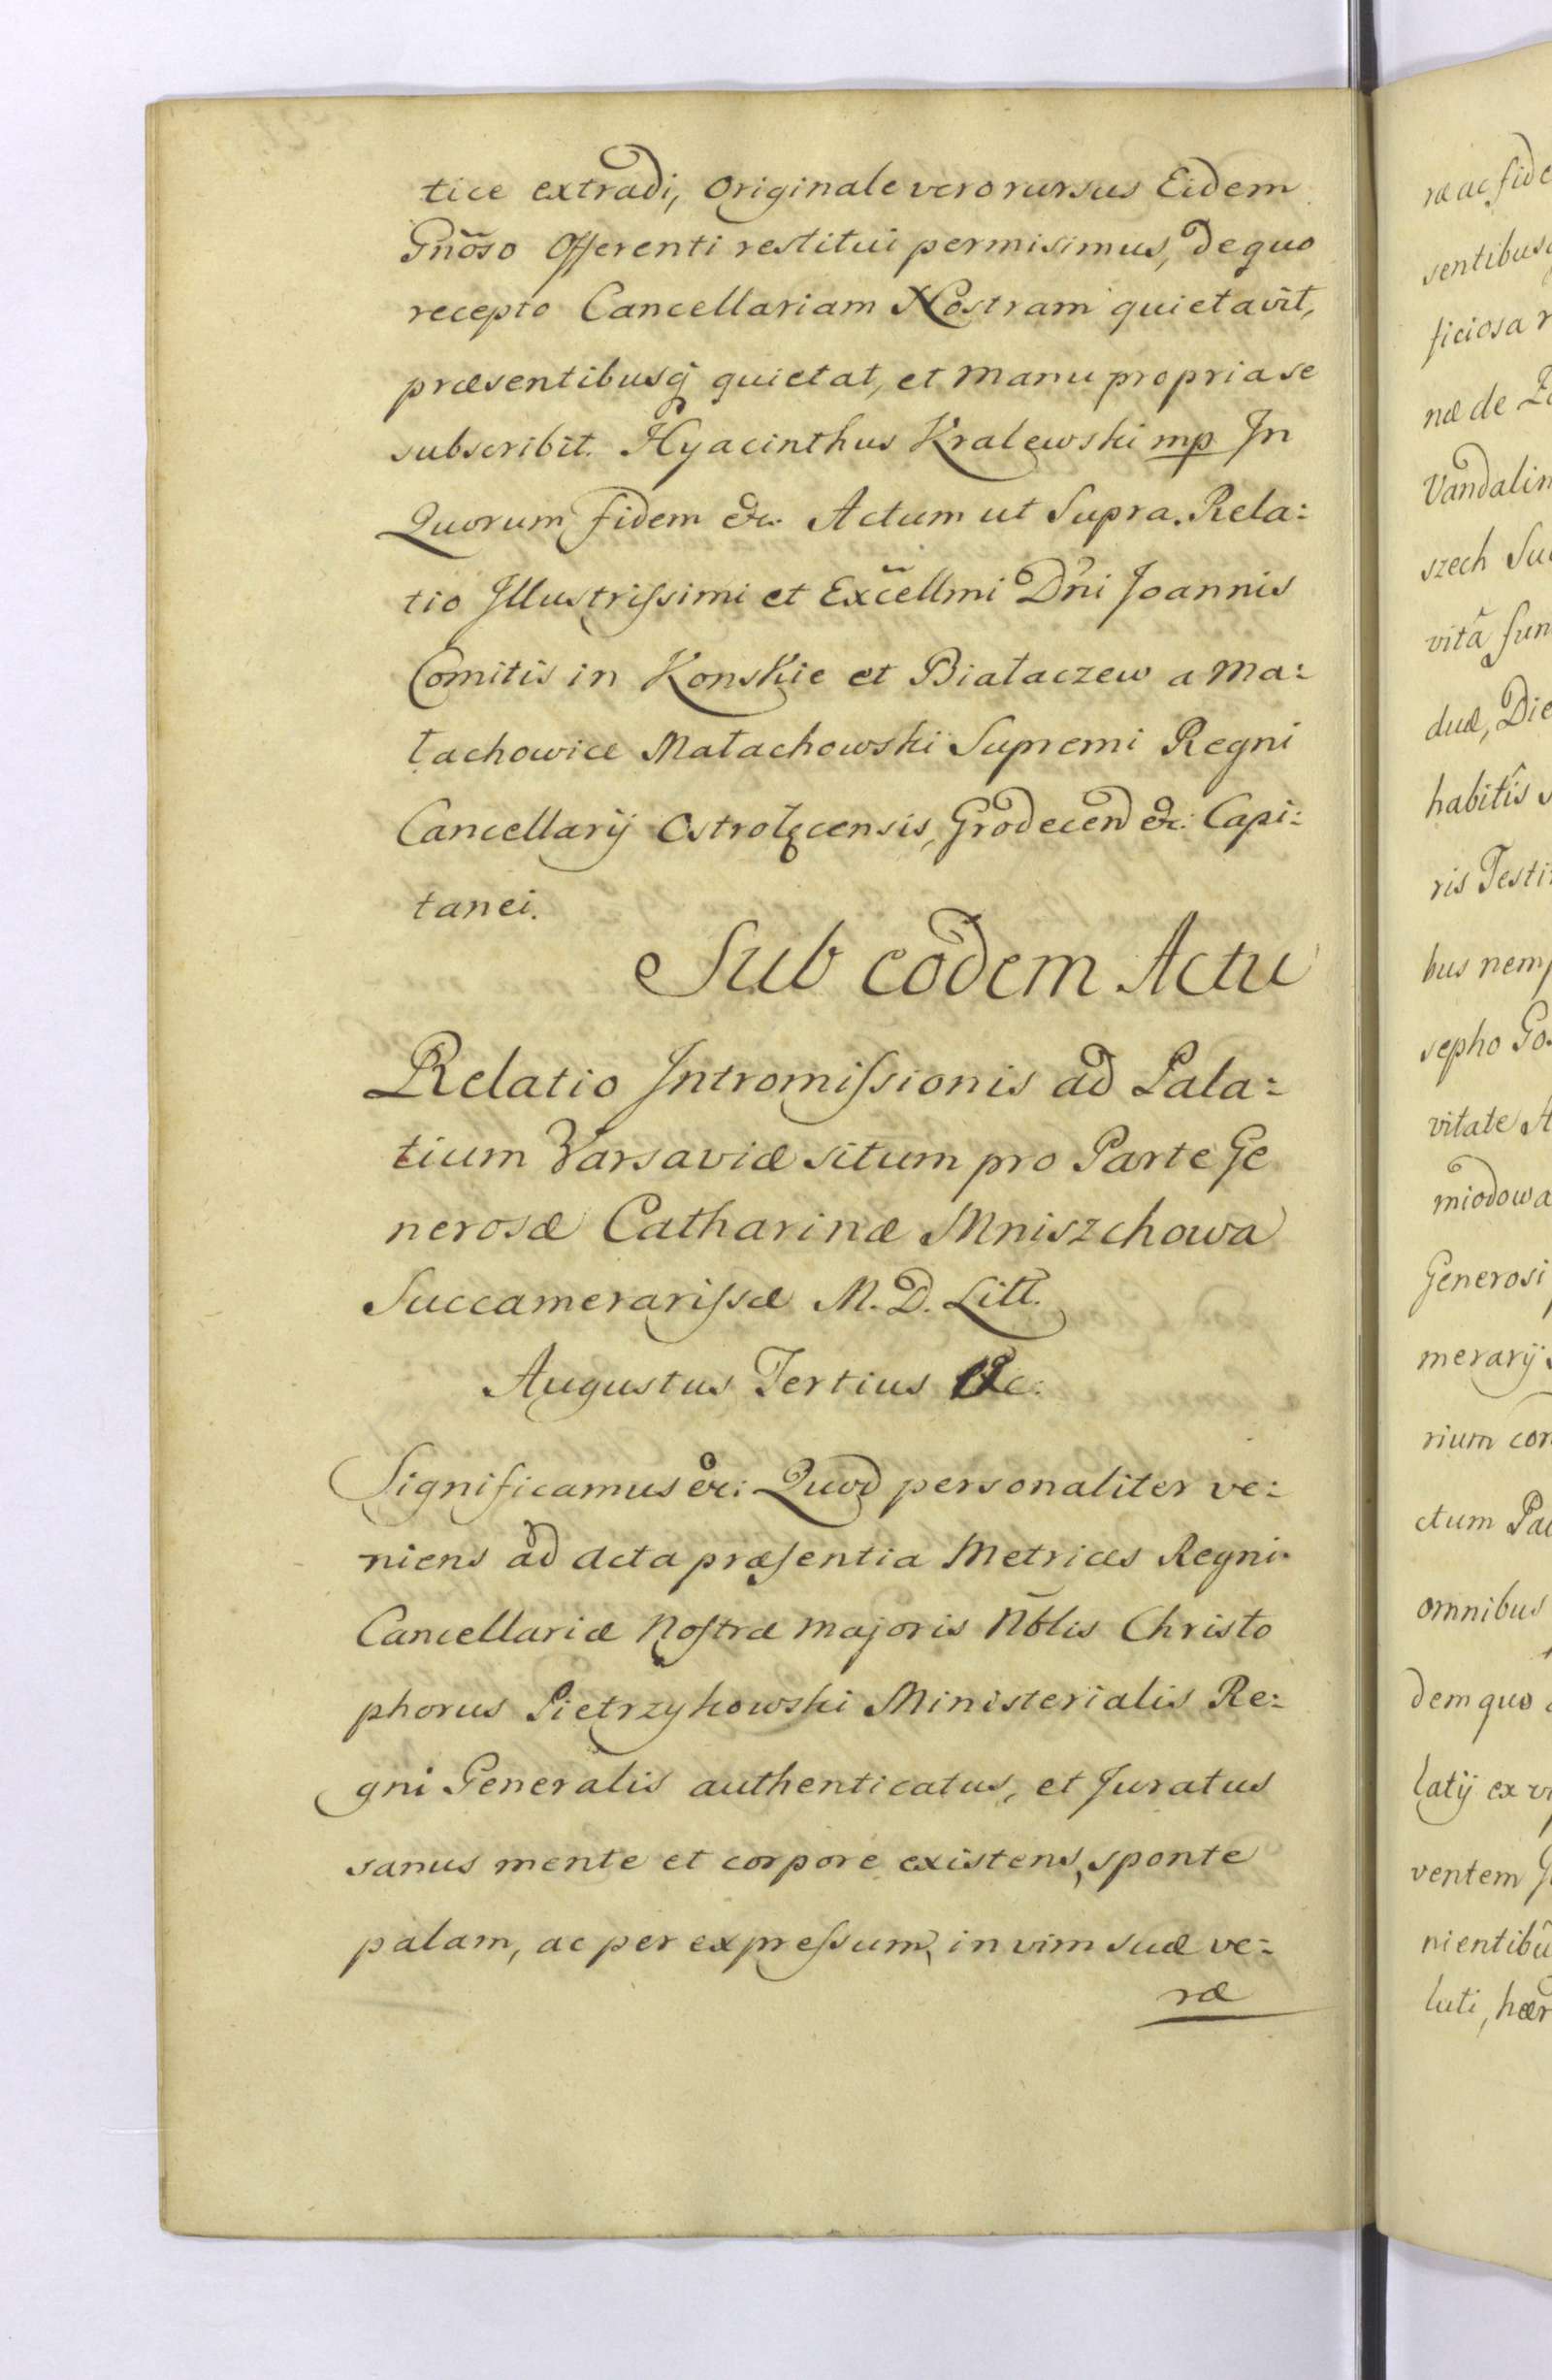 tice extradi, Originale vero rursus Eidem
Gñoso Offerenti restitui permisimus, de quo
recepto Cancellariam Nostram quietavit,
præsentibusq́ quietat, et manu propria se
subscribit. Hyacinthus Kralewski mp In
Quorum fidem &c. Actum ut Supra. Rela:
tio Illustriſsimi et Excellmi Dñi Joannis
Comitis in Konskie et Białaczew a Ma:
łachowice Małachowski Supremi Regni
Cancellarij Ostrołęcensis, Grodecen &c: Capi:
tanei.
Sub eodem Actu
Relatio Intromiſsionis ad Pala:
tium Varsaviæ situm pro Parte Ge
nerosæ Catharinæ Mniszchowa
Succamerariſsæ M. D. Litt.
Augustus Tertius &c.
Significamus &c: Quod personaliter ve:
niens ad acta præſentia Metrices Regni
Cancellariæ Noſtræ Majoris Nõblis Christo
phorus Pietrzykowski Ministerialis Re:
gni Generalis authenticatus, et Juratus
sanus mente et corpore existens, sponte
palam, ac per expreſsum, in vim suæ ve:
ræ
ræ ac fide
sentibus
ficiosa r
næ de
Vandalin
szech Su
vitâ fun
duæ, Die
habitîs
ris Testi
bus nem
sepho Go
vitate
miodowa
Generosi
merarij
rium con
ctum Pa
omnibus
dem quo
latij ex vi
ventem
nientibũ
luti, hær